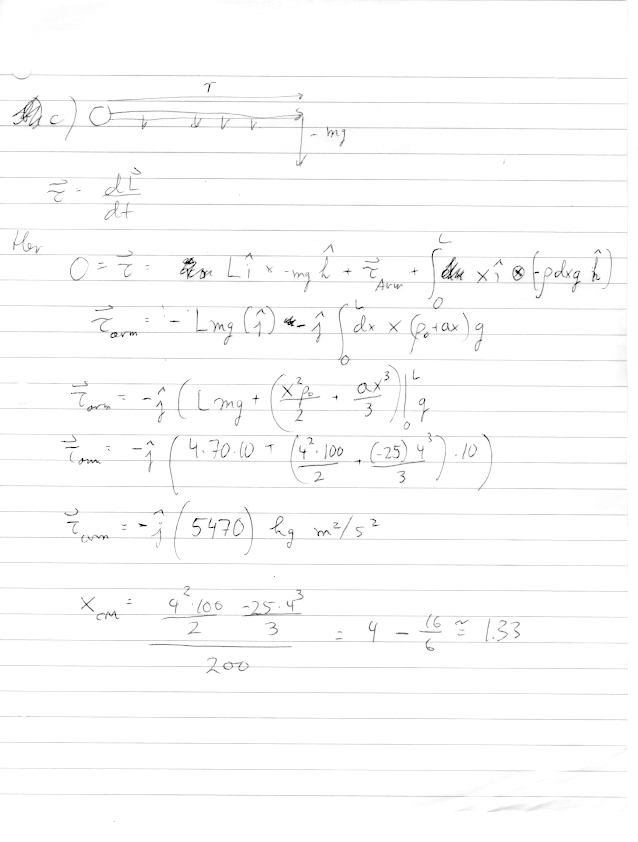 c)
r
- mg
τ⃗ = dL⃗/dt
Her
0 = τ⃗ = L î × -mg k̂ + τ⃗_Arm + ∫₀ᴸ x î ⊗ (-ρdxg k̂)
τ⃗_arm = - Lmg (ĵ) - ĵ ∫₀ᴸ dx x (ρ₀+ax) g
τ⃗_arm = -ĵ (Lmg + (x²ρ₀/2 + ax³/3)|₀ᴸ g
τ⃗_arm = -ĵ (4·70·10 + (4²·100/2 + (-25)4³/3)·10)
τ⃗_arm = -ĵ (5470) kg m²/s²
x_CM = (4²·100/2 -25·4³/3)/200 = 4 - 16/6 ≅ 1.33